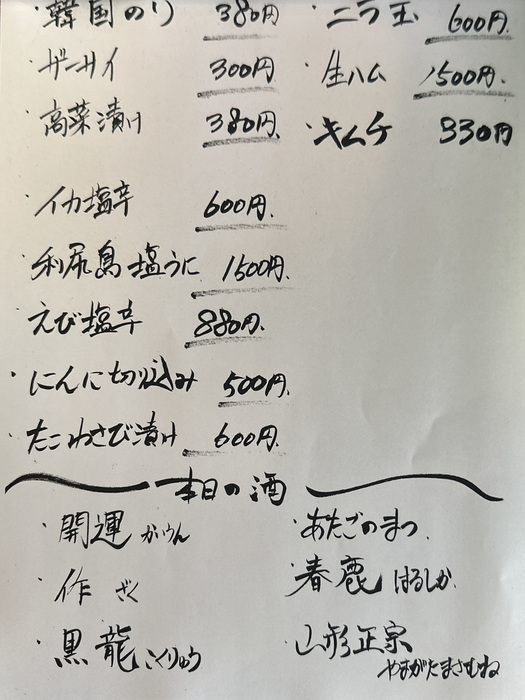 ・韓国のり 380円
・ザーサイ 300円
・高菜漬け 380円
・イカ塩辛 600円
・利尻島塩うに 1500円
・えび塩辛 880円
・にんにく切り込み 500円
・たこわさび漬け 600円
・ニラ玉 600円
・生ハム 1500円
・キムチ 330円
本日の酒
・開運 かいうん
・作 ざく
・黒龍 こくりゅう
・あたごのまつ
・春鹿 はるしか
・山形正宗
やまがたまさむね